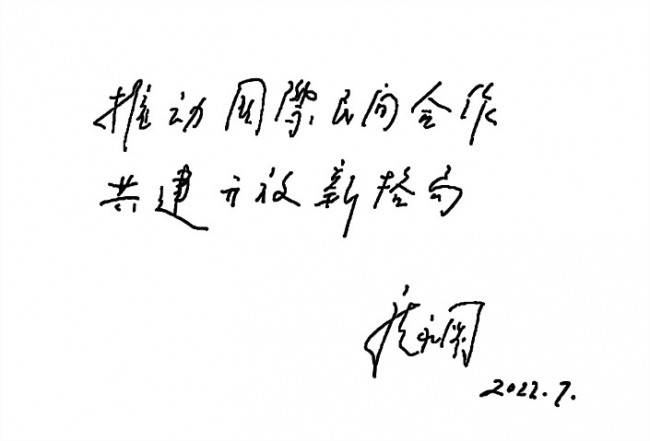 推动国際民间合作
共建开放新格局
2022.7.